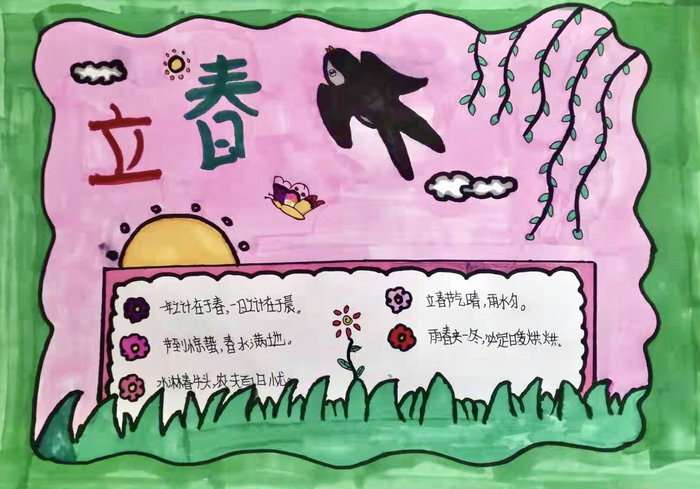 立春
一年之计在于春，一日之计在于晨。
节到惊蛰，春水满地。
水淋春牛头，农夫百日忧。
立春节气晴，雨水匀。
雨春夹一冬，必定暖烘烘。